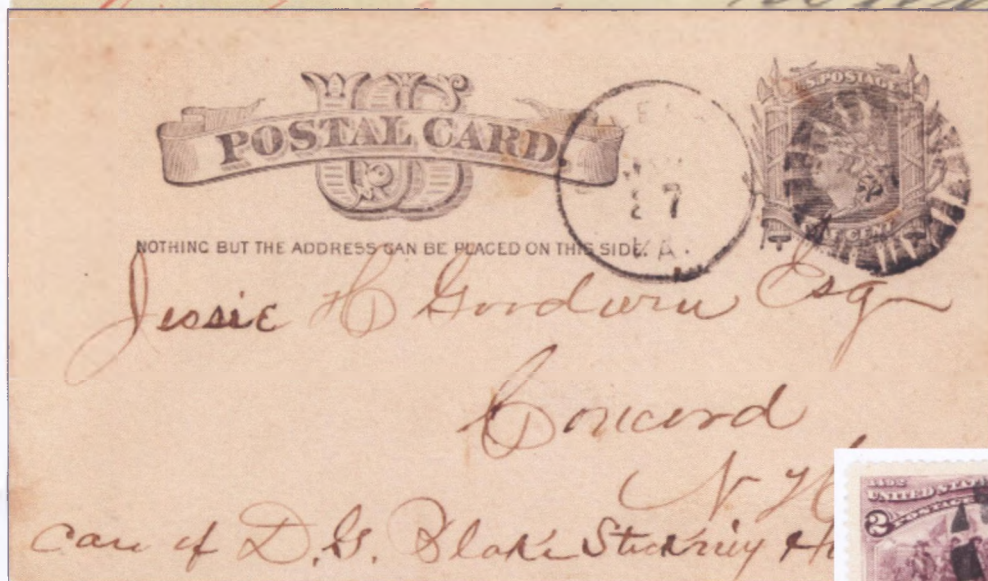 US
POSTAL CARD.
U.S. POSTAGE
ONE CENT
27
NOTHING BUT THE ADDRESS CAN BE PLACED ON THIS SIDE.
Jessie H Goodwin Esq
Concord
N H
care of D.G. Blake Stickney
1492
UNITED STAT
POSTAGE
2